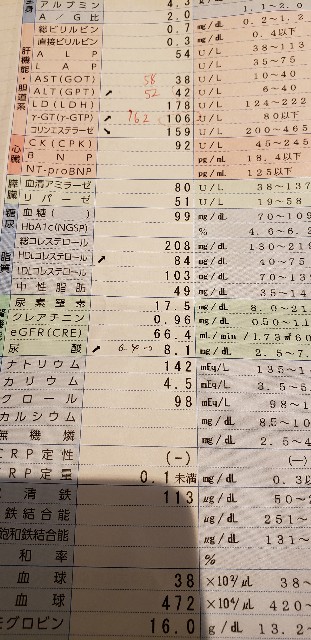 アルブミン 4.3
A / G 比 2.0 1.1~2.0
総ビリルビン 0.7 mg / dL 0.2~1.2
直接ビリルビン 0.3 mg / dL 0.4以下
ALP 54 U / L 38~113
LAP U / L 35~75
AST(GOT) 58 38 U / L 10~40
ALT(GPT) 52 42 U / L 6~40
LD(LDH) 178 U / L 124~222
γ-GT(γ-GTP) 162 106 U / L 80以下
コリンエステラーゼ 159 U / L 200~465
CK(CPK) 92 U / L 45~245
BNP pg / mL 18.4以下
NT-proBNP pg / mL 125以下
血清アミラーゼ 80 U / L 38~137
リパーゼ 51 U / L 19~58
血糖( ) 99 mg / dL 70~109
HbA1c(NGSP) % 4.6~6.2
総コレステロール 208 mg / dL 130~219
HDLコレステロール 84 mg / dL 40~75
LDLコレステロール 103 mg / dL 70~13
中性脂肪 49 mg / dL 35~14
尿素窒素 17.5 mg / dL 8.0~21
クレアチニン 0.96 mg / dL 0.50~1.1
eGFR(CRE) 66.4 mL / min / 1.73 60
尿酸 8.1 mg / dL 2.5~7.
ナトリウム 142 mEq/L 135~1
カリウム 4.5 mEq/L 3.5~5
クロール 98 mEq/L 98~1
カルシウム mg / dL 8.5~10
無機燐 mg / dL 2.5~4
CRP定性 (-) (-)
CRP定量 0.1 未満 mg / dL 0.3
清鉄 113 μg / dL 50~2
鉄結合能 μg / dL 251~
飽和鉄結合能 μg / dL 131~
和率 %
血球 38 ×10²/μL 38~
血球 472 ×10⁴/μL 420~
モグロビン 16.0 g / dL 13.2~